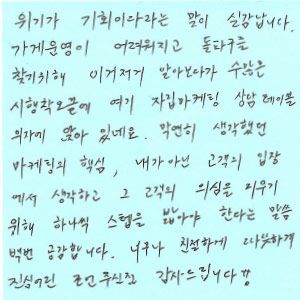 위기가 기회이다라는 말이 실감납니다.
가게운영이 어려워지고 돌파구를
찾기위해 이거저거 알아보다가 수많은
시행착오끝에 여기 자립마케팅 상담 테이블
의자에 앉아 있네요. 막연히 생각했던
마케팅의 핵심, 내가 아닌 고객의 입장
에서 생각하고 그 고객의 의심을 지우기
위해 하나씩 스텝을 밟아야 한다는 말씀
백번 공감합니다. 너무나 친절하게 따뜻하게
진심어린 조언 주신점 감사드립니다!!